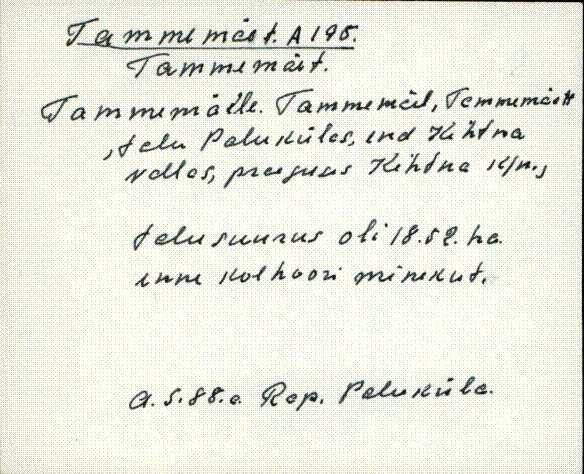 Tammemäet. A 195.
Tammemäet.
Tammemäele. Tammemäel, Tammemäelt
, talu Palukülas, end Kehtna
vallas, praeguses Kehtna k/n.,
talu suurus oli 18.52. ha.
enne kolhoosi minekut.
a. s. 88. a. Rap. Paluküla.